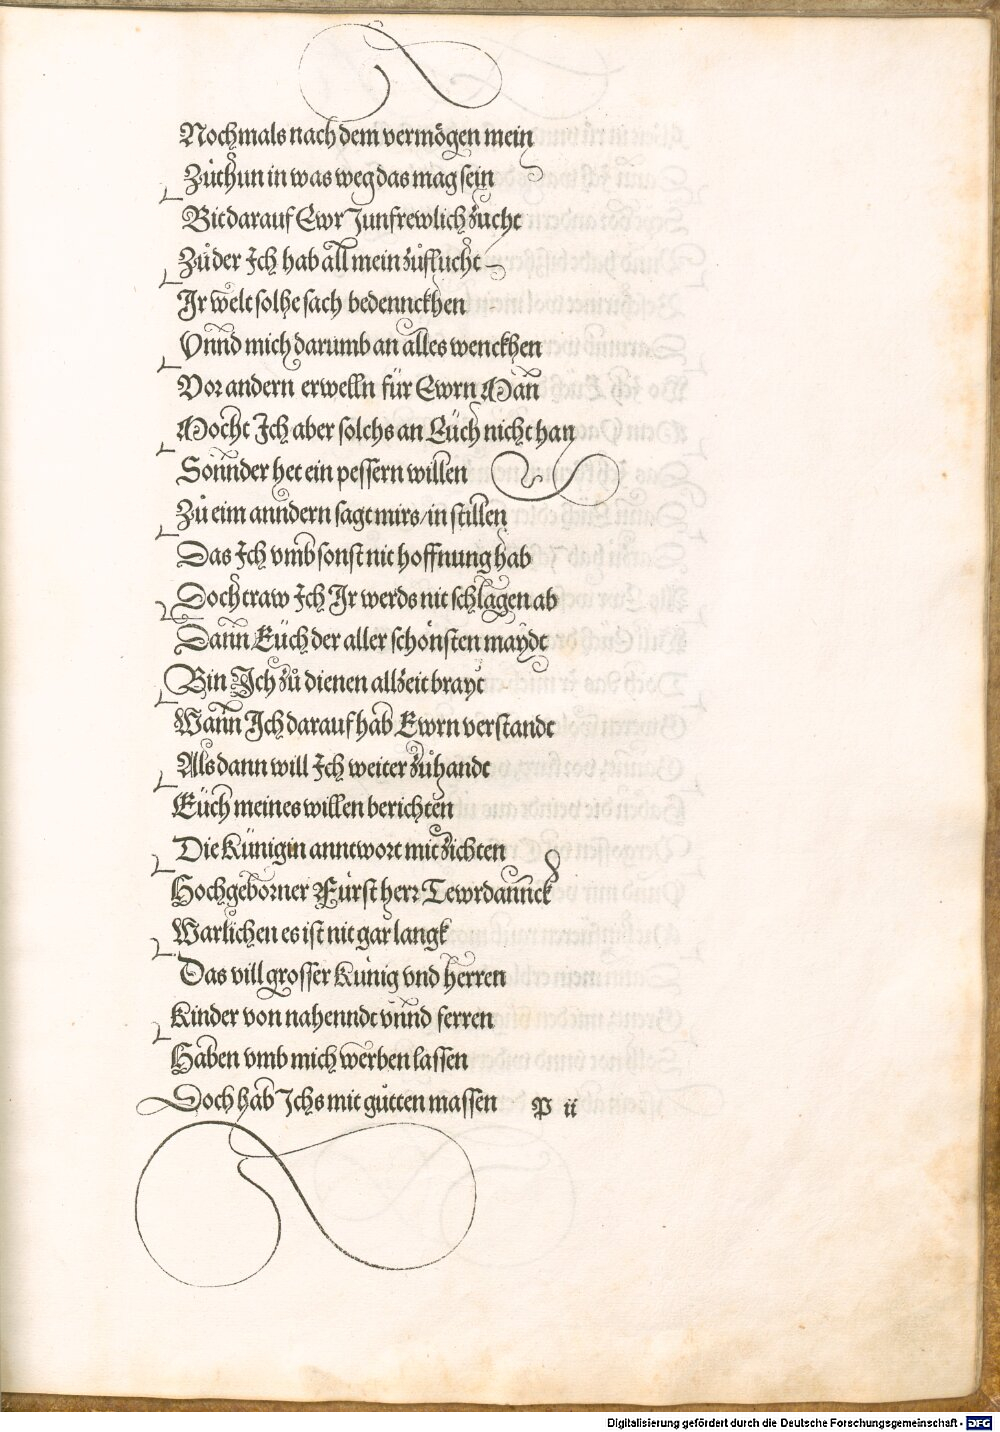 Nochmals nach dem vermögen mein
Zůthun in was weg das mag sein
Bit darauf Ewr Junfrewlich zucht
Zůder Ich hab all mein zůflucht
Ir welt solhe sach bedennckhen
Vnnd mich darumb an alles wenckhen
Vor andern erwelln für Ewrn Man
Mocht Ich aber solchs an Eüch nicht han
Sonnder het ein pessern willen
Zů eim anndern sagt mirs/in stillen
Das Ich vmb sonst nit hoffnung hab
Doch traw Ich Ir werds nit schlagen ab
Dann Eüch der aller schönsten maydt
Bin Ich zů dienen allzeit brayt
Wann Ich darauf hab Ewrn verstandt
Als dann will Ich weiter zůhandt
Eüch meines willen berichten
Die Künigin anntwort mit zichten
Hochgeborner Fürst herr Tewrdannck
Warlichen es ist nit gar langk
Das vill grosser Künig vnd herren
Kinder von nahenndt vnnd ferren
Haben vmb mich werben lassen
Doch hab Ichs mit gůtten massen
P ii
Digitalisierung gefördert durch die Deutsche Forschungsgemeinschaft - DFG